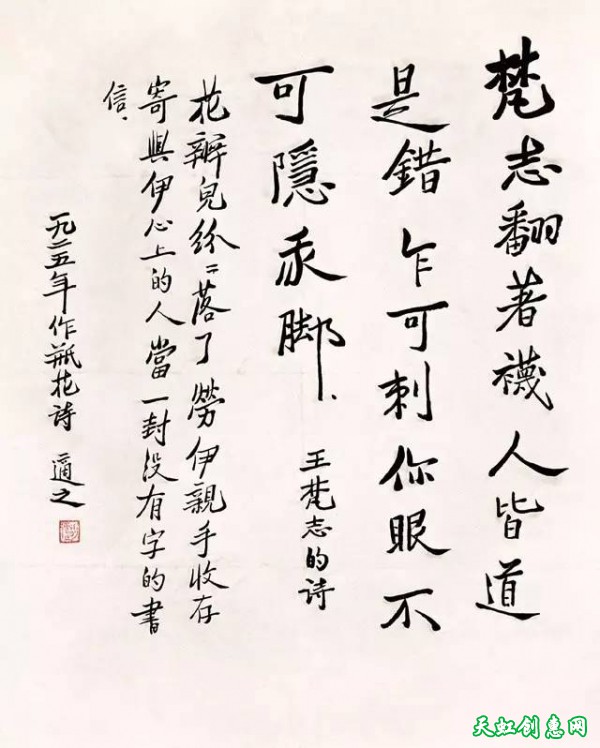 梵志翻著襪人皆道
是錯乍可刺你眼不
可隱我脚、
王梵志的詩
花瓣兒紛〻落了勞伊親手收存
寄與伊心上的人當一封没有字的書
信、
一九二五年作瓶花詩 適之
天虹创惠网